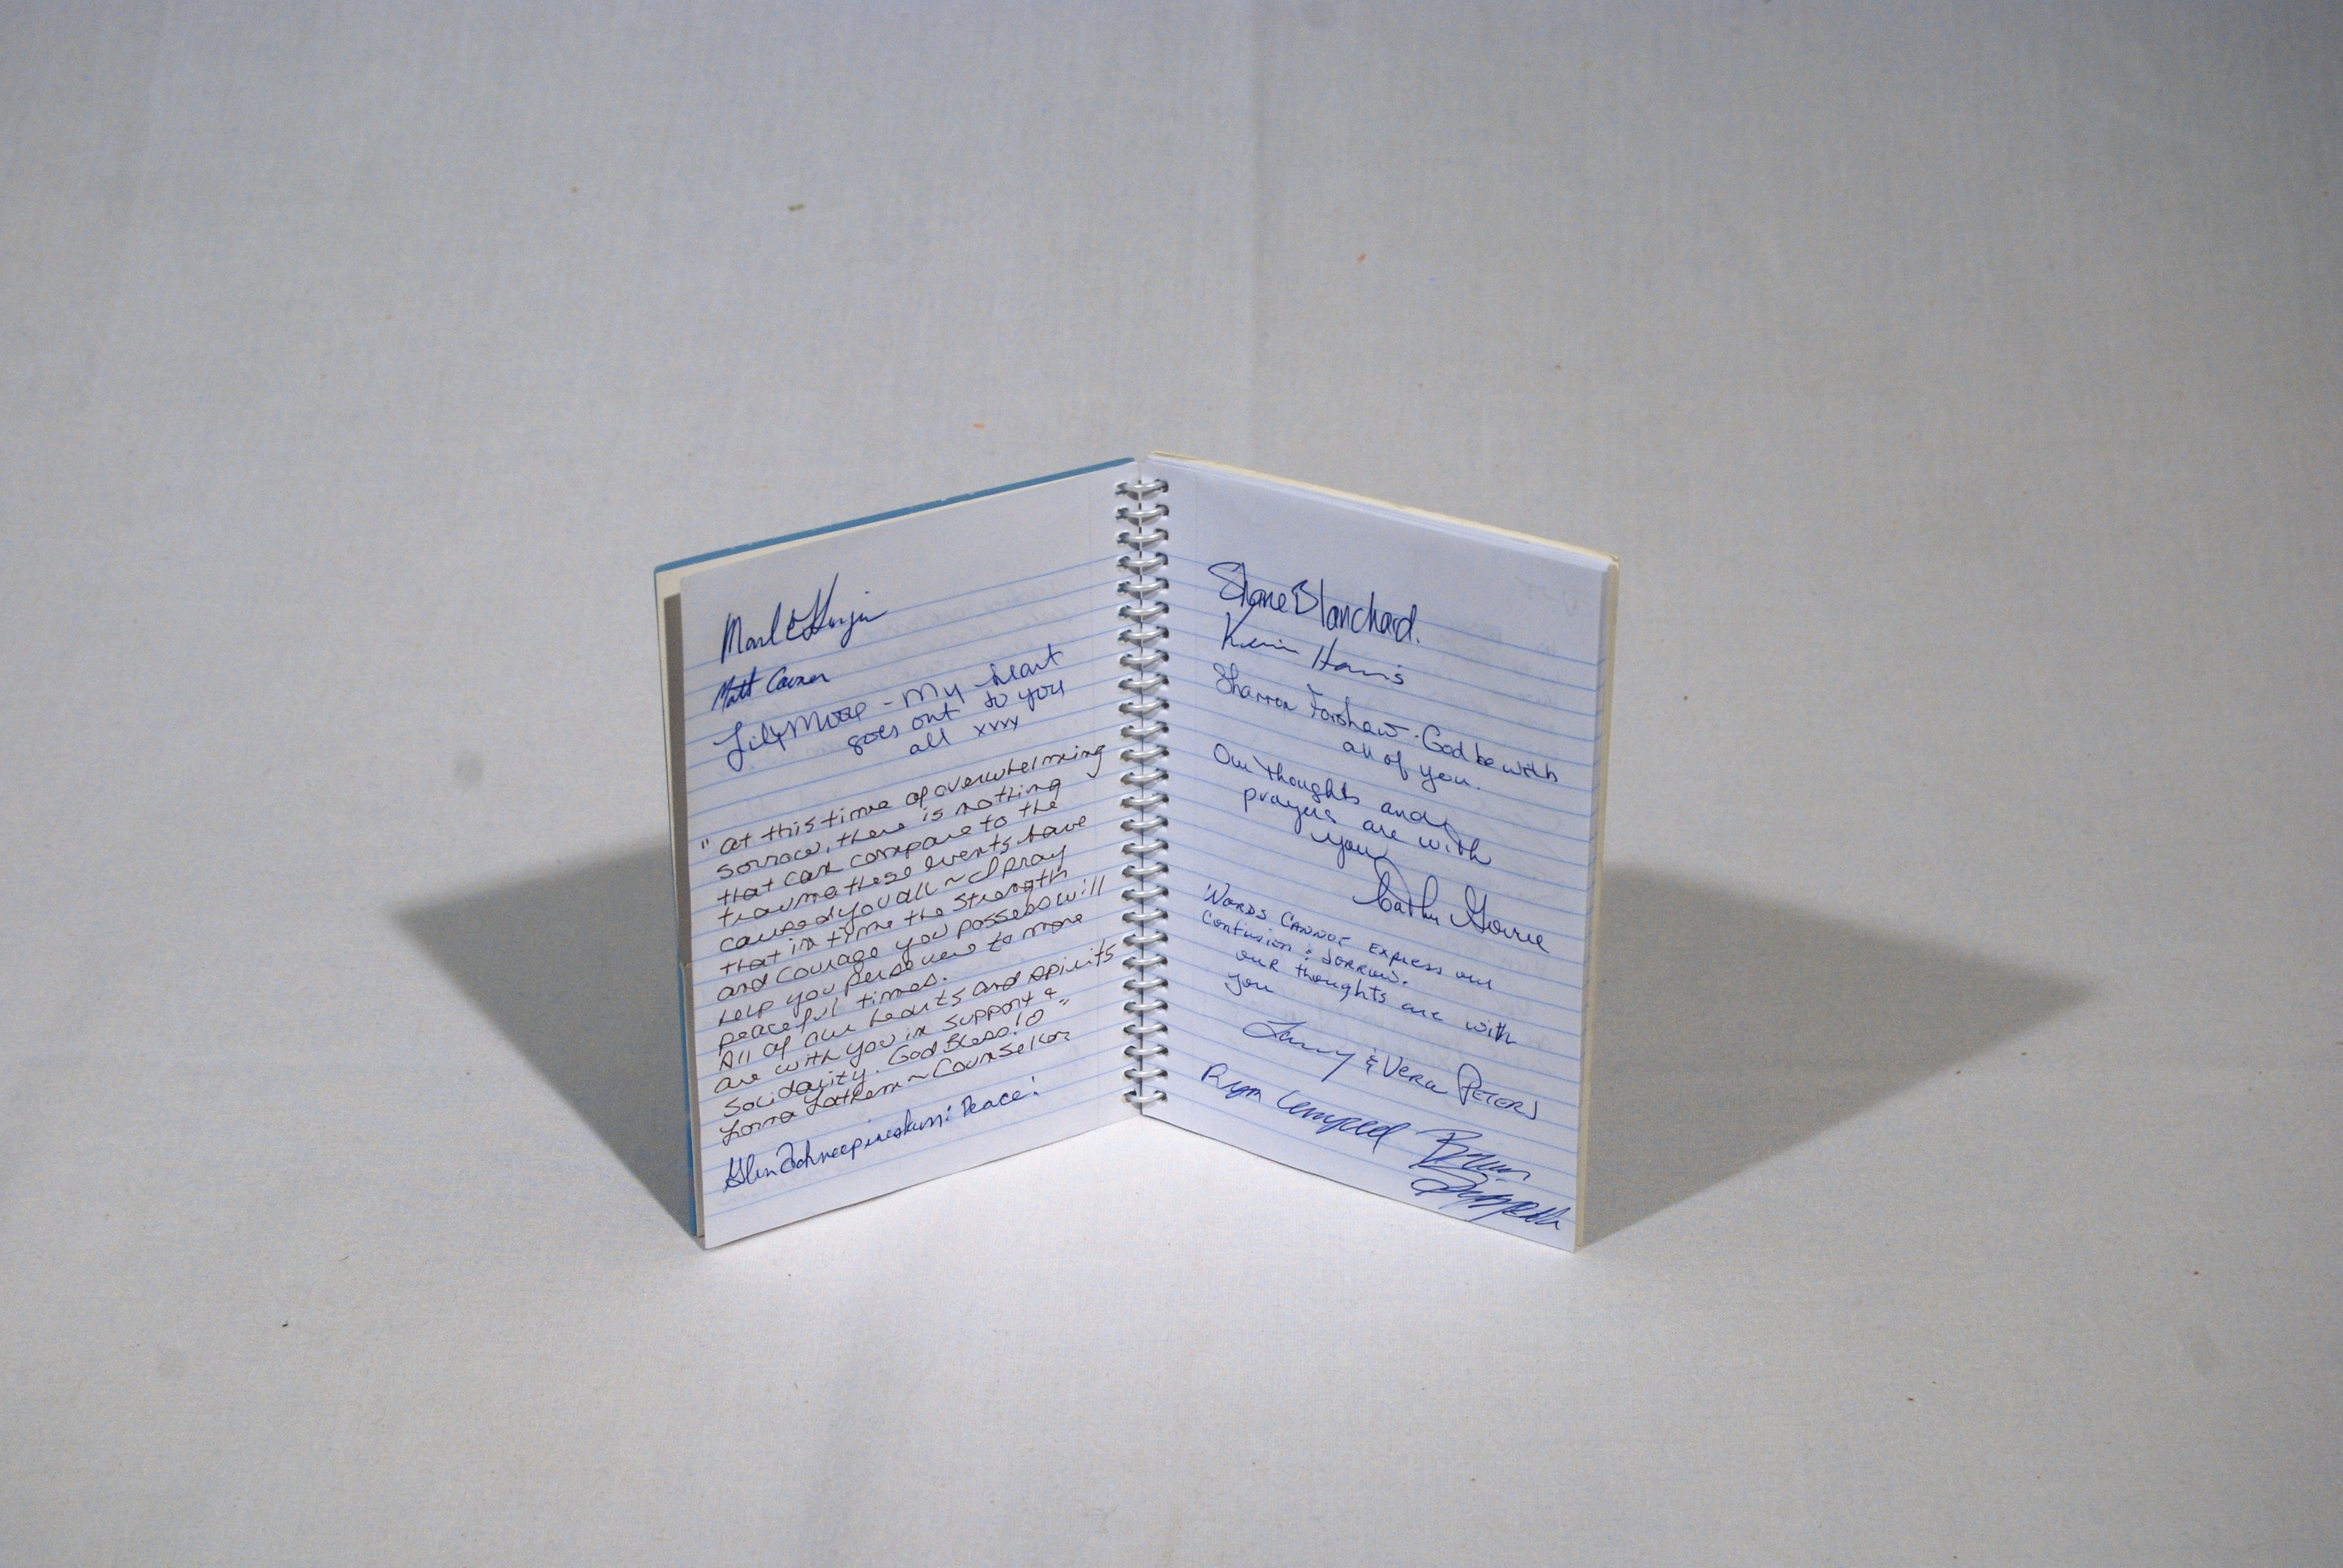 Matt
Lily Moore - My heart
goes out to you
all xxxx
"at this time of overwhelming
sorrow, there is nothing
that can compare to the
trauma these events have
caused you all ~ I pray
that in time the strength
and courage you possess will
help you persevere to more
peaceful times.
All of our hearts and spirits
are with you in support &
solidarity. God Bless!"
Lorna Lathem ~ Counsellor
Peace!
Shane Blanchard.
Harris
Sharron Forshaw - God be with
all of you.
Our thoughts and
prayers are with
you
Words Cannot express our
confusion & sorrow.
our thoughts are with
you
Larry & Vera Peters
Ryan